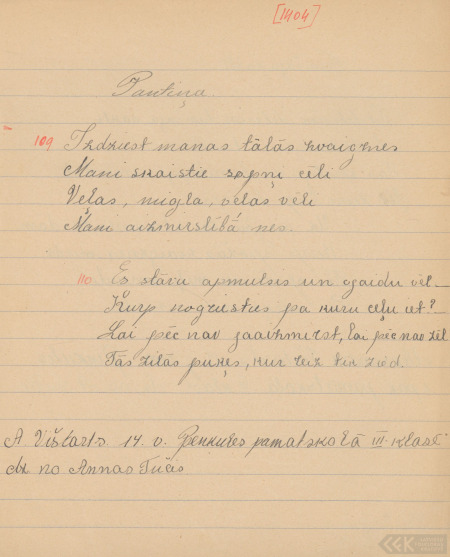 [1404]
Pantiņa.
109 Izdziest manas tālās zvaigznes
Mani skaistie sapņi cēli
Veļas, migla, veļas vēli
Mani aizmirstībā nes.
110 Es stāvu apmulsis un gaidu vēl
Kurp nogriezties pa kuru ceļu iet?
Lai pēc nav jāaizmirst, lai pēc nav žēl
Tās zilās puķes, kur tik zied.
A Višķarts 14. v. Penkules pamatskolā III. klasē
dz no Annas